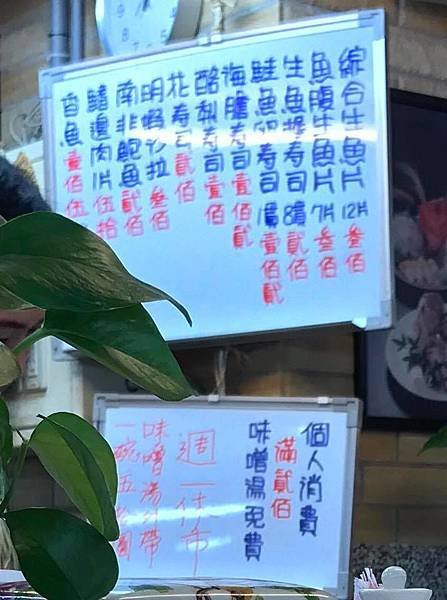 綜合生魚片12片叁佰
魚腹生魚片7片叁佰
生魚握壽司8個貳佰
鮭魚卵壽司1個壹佰貳
海膽壽司壹佰貳
酪梨壽司壹佰
花壽司貳佰
明蝦沙拉叁佰
南非鮑魚貳佰
鰭邊肉1片伍拾
白魚壹佰伍
個人消費
滿貳佰
味噌湯免費
週一休市
味噌湯外帶
一碗五